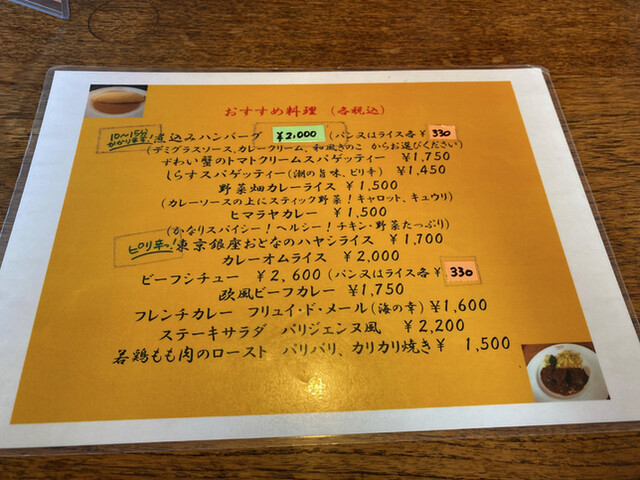 おすすめ料理 (各税込)
10〜15分
かかります!煮込みハンバーグ ¥2,000 (パン又はライス各¥330
(デミグラスソース、カレークリーム、和風きのこ からお選びください)
ずわい蟹のトマトクリームスパゲッティー ¥1,750
しらすスパゲッティー(潮の旨味、ピリ辛) ¥1,450
野菜畑カレーライス ¥1,500
(カレーソースの上にスティック野菜!キャロット、キュウリ)
ヒマラヤカレー ¥1,500
(かなりスパイシー!ヘルシー!チキン・野菜たっぷり)
ピリ辛っ!東京銀座おとなのハヤシライス ¥1,700
カレーオムライス ¥2,000
ビーフシチュー ¥2,600 (パン又はライス各¥330
欧風ビーフカレー ¥1,750
フレンチカレー フリュイ・ド・メール(海の幸) ¥1,600
ステーキサラダ パリジェンヌ風 ¥2,200
若鶏もも肉のロースト パリパリ、カリカリ焼き¥ 1,500